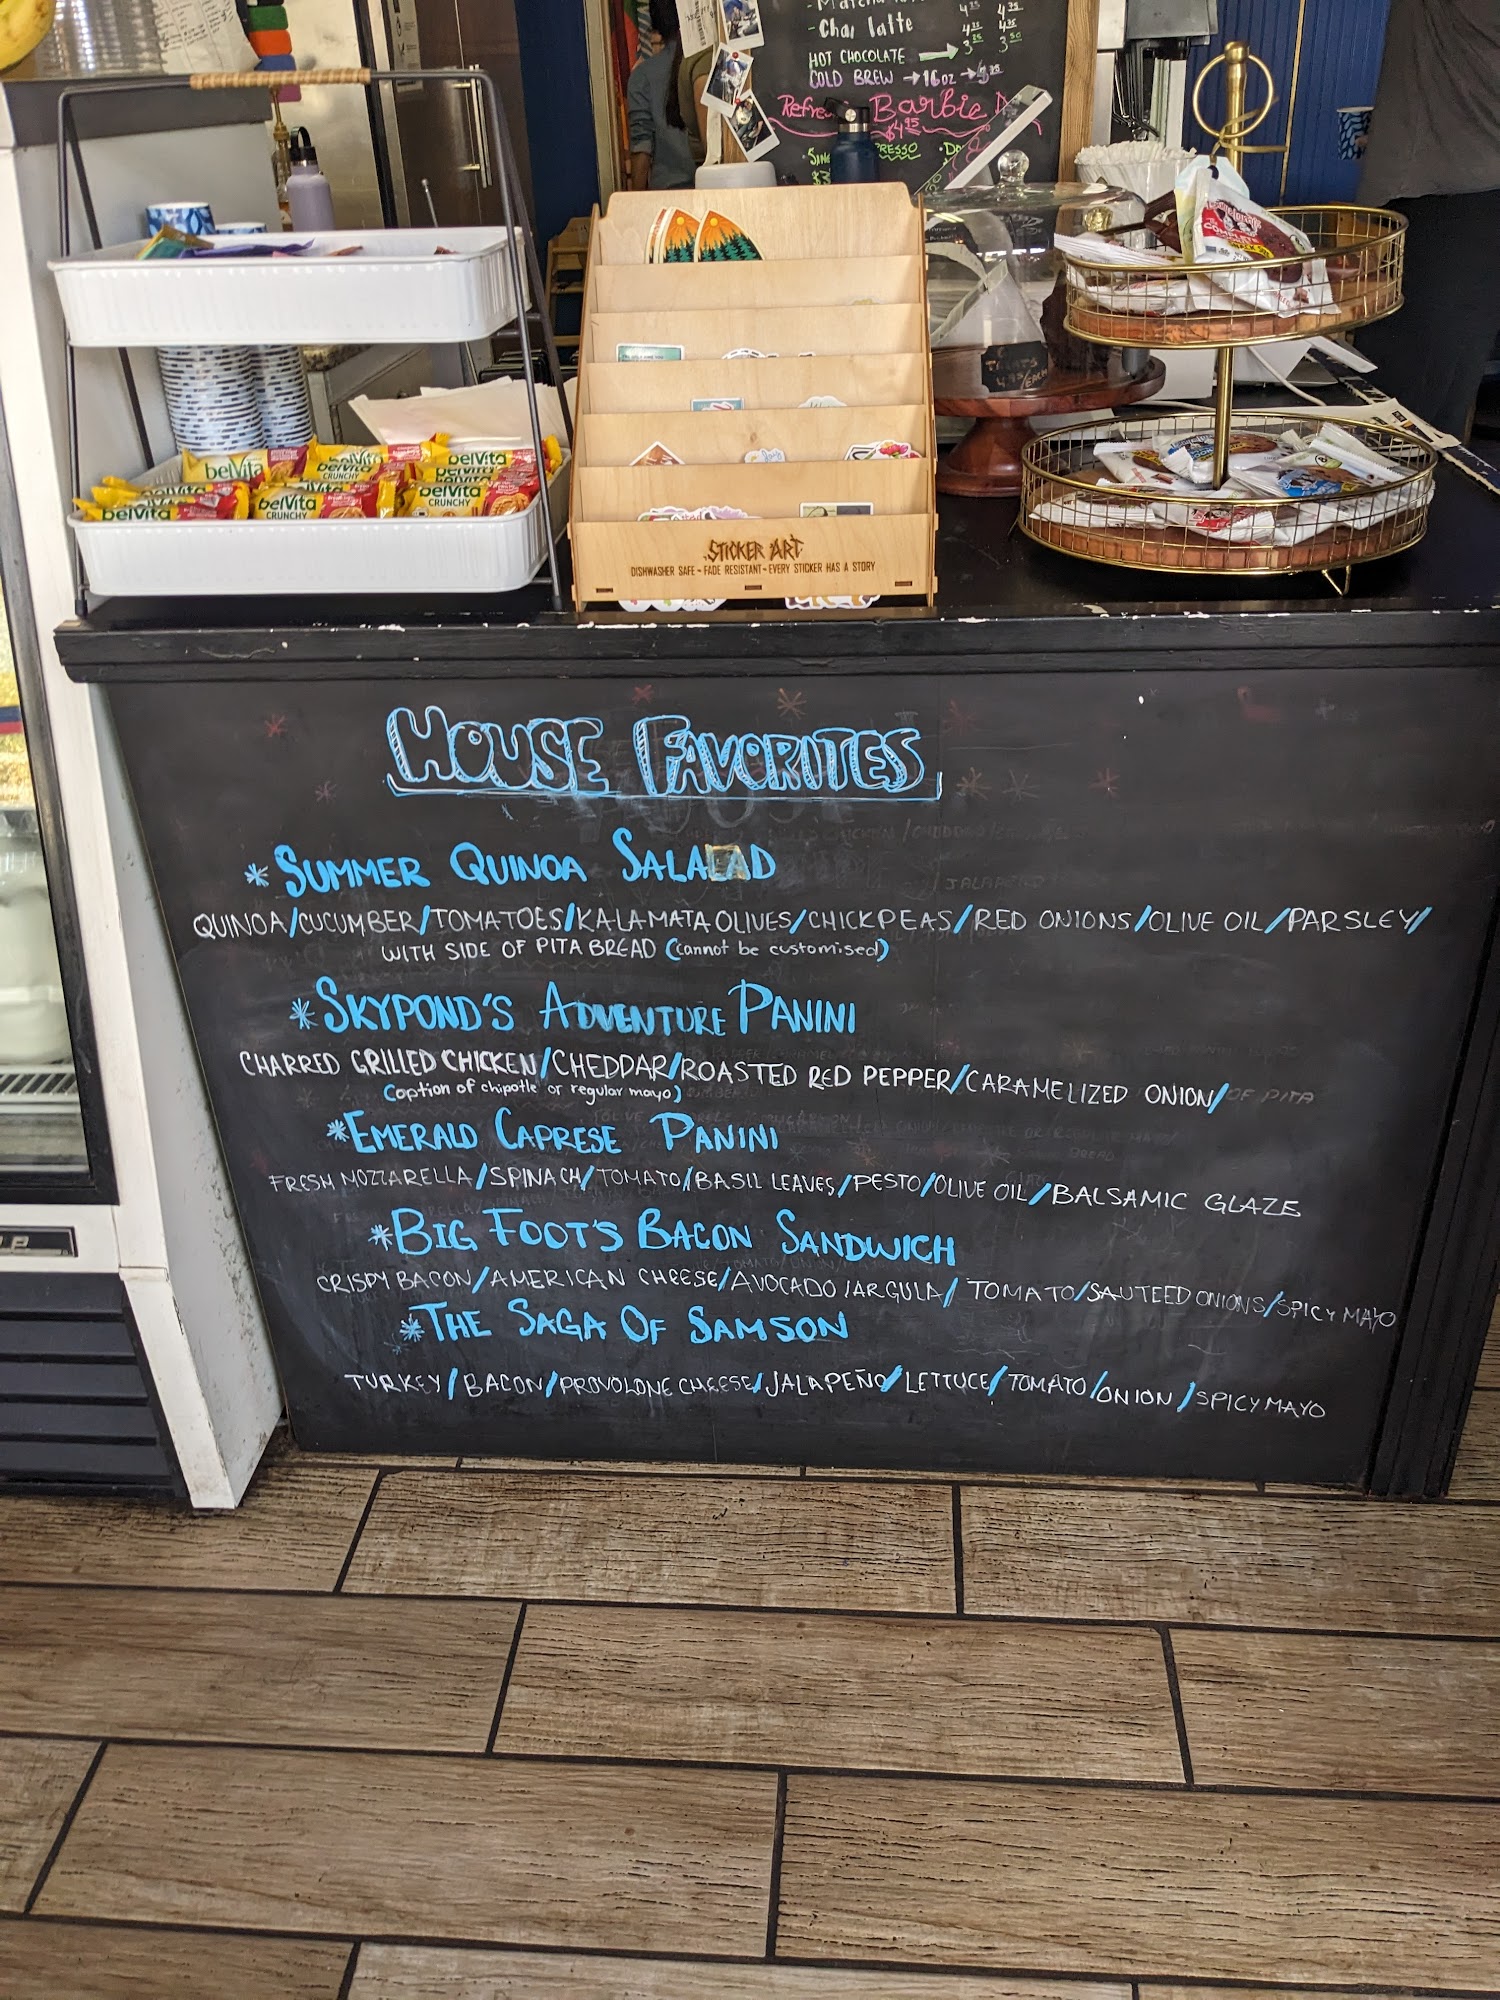 Chai latte
HOT CHOCOLATE
COLD BREW 16oz
Barbie
$4.95
belVita
belVita
belVita
CRUNCHY
belVita
belVita
CRUNCHY
belVita
CRUNCHY
STICKER ART
DISHWASHER SAFE ~ FADE RESISTANT ~ EVERY STICKER HAS A STORY
HOUSE FAVORITES
*SUMMER QUINOA SALALAD
QUINOA/CUCUMBER/TOMATOES/KALAMATA OLIVES/CHICKPEAS/RED ONIONS/OLIVE OIL/PARSLEY/
WITH SIDE OF PITA BREAD (cannot be customised)
*SKYPOND'S ADVENTURE PANINI
CHARRED GRILLED CHICKEN/CHEDDAR/ROASTED RED PEPPER/CARAMELIZED ONION/ OF PITA
(option of chipotle or regular mayo)
*EMERALD CAPRESE PANINI
FRESH MOZZARELLA/SPINACH/TOMATO/BASIL LEAVES/PESTO/OLIVE OIL/BALSAMIC GLAZE
*BIG FOOT'S BACON SANDWICH
CRISPY BACON/AMERICAN CHEESE/AVOCADO/ARGULA/ TOMATO/SAUTEED ONIONS/SPICY MAYO
*THE SAGA OF SAMSON
TURKEY/BACON/PROVOLONE CHEESE/JALAPEÑO/LETTUCE/TOMATO/ONION/SPICY MAYO